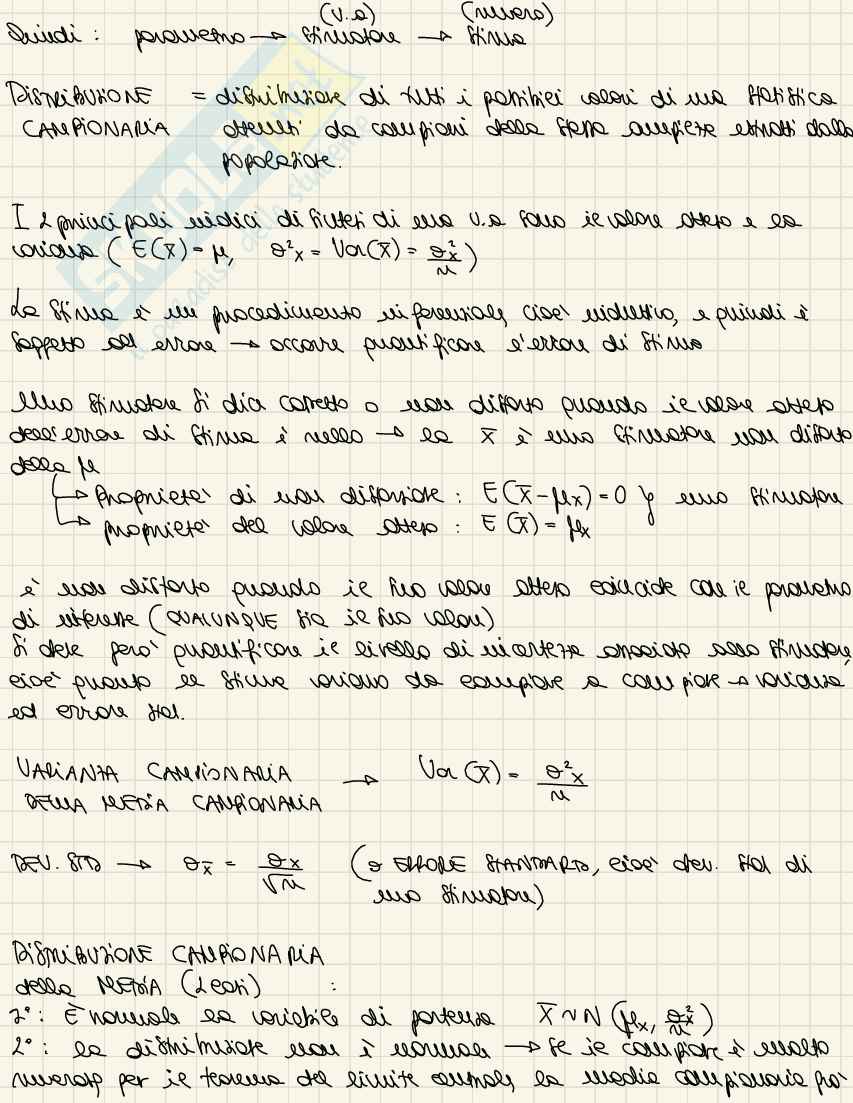 (v.a) (numero)
Quindi : parametro → stimatore → stima
DISTRIBUZIONE = distribuzione di tutti i possibili valori di una statistica
CAMPIONARIA ottenuti da campioni della stessa ampiezza estratti dalla
popolazione.
I 2 principali indici di sintesi di una v.a sono il valore atteso e la
varianza ( E(X̄) = μ, σ²x = Var(X̄) = σ²x/n )
La stima è un procedimento inferenziale, cioè induttivo, e quindi è
soggetto ad errore → occorre quantificare l'errore di stima
Uno stimatore si dice corretto o non distorto quando il valore atteso
dell'errore di stima è nullo → la x̄ è uno stimatore non distorto
della μ
↳ Proprietà di non distorsione : E(X̄ - μx) = 0 } uno stimatore
↳ proprietà del valore atteso : E(X̄) = μx
è non distorto quando il suo valore atteso coincide con il parametro
di interesse (QUALUNQUE sia il suo valore)
Si deve però quantificare il livello di incertezza associato allo stimatore,
cioè quanto le stime variano da campione a campione → varianza
ed errore std.
VARIANZA CAMPIONARIA → Var(X̄) = σ²x/n
DELLA MEDIA CAMPIONARIA
DEV. STD → σx̄ = σx/√n (o ERRORE STANDARD, cioè dev. std di
uno stimatore)
DISTRIBUZIONE CAMPIONARIA
della MEDIA (2 casi) :
1°: È normale la variabile di partenza X̄ ~ N (μx, σ²x/n)
2°: la distribuzione non è normale → se il campione è molto
numeroso, per il teorema del limite centrale, la media campionaria può
SKUOLA.net
il paradiso dello studente